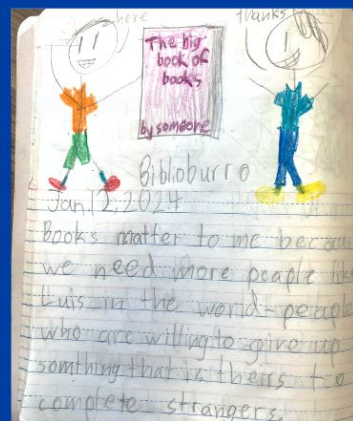 here thanks
The big
book of
books
by someone
Biblioburro
Jan. 12, 2024
Books matter to me becau
we need more peaple lik
Luis in the world-peaple
who are willing to give up
somthing that is theirs to
complete strangers.